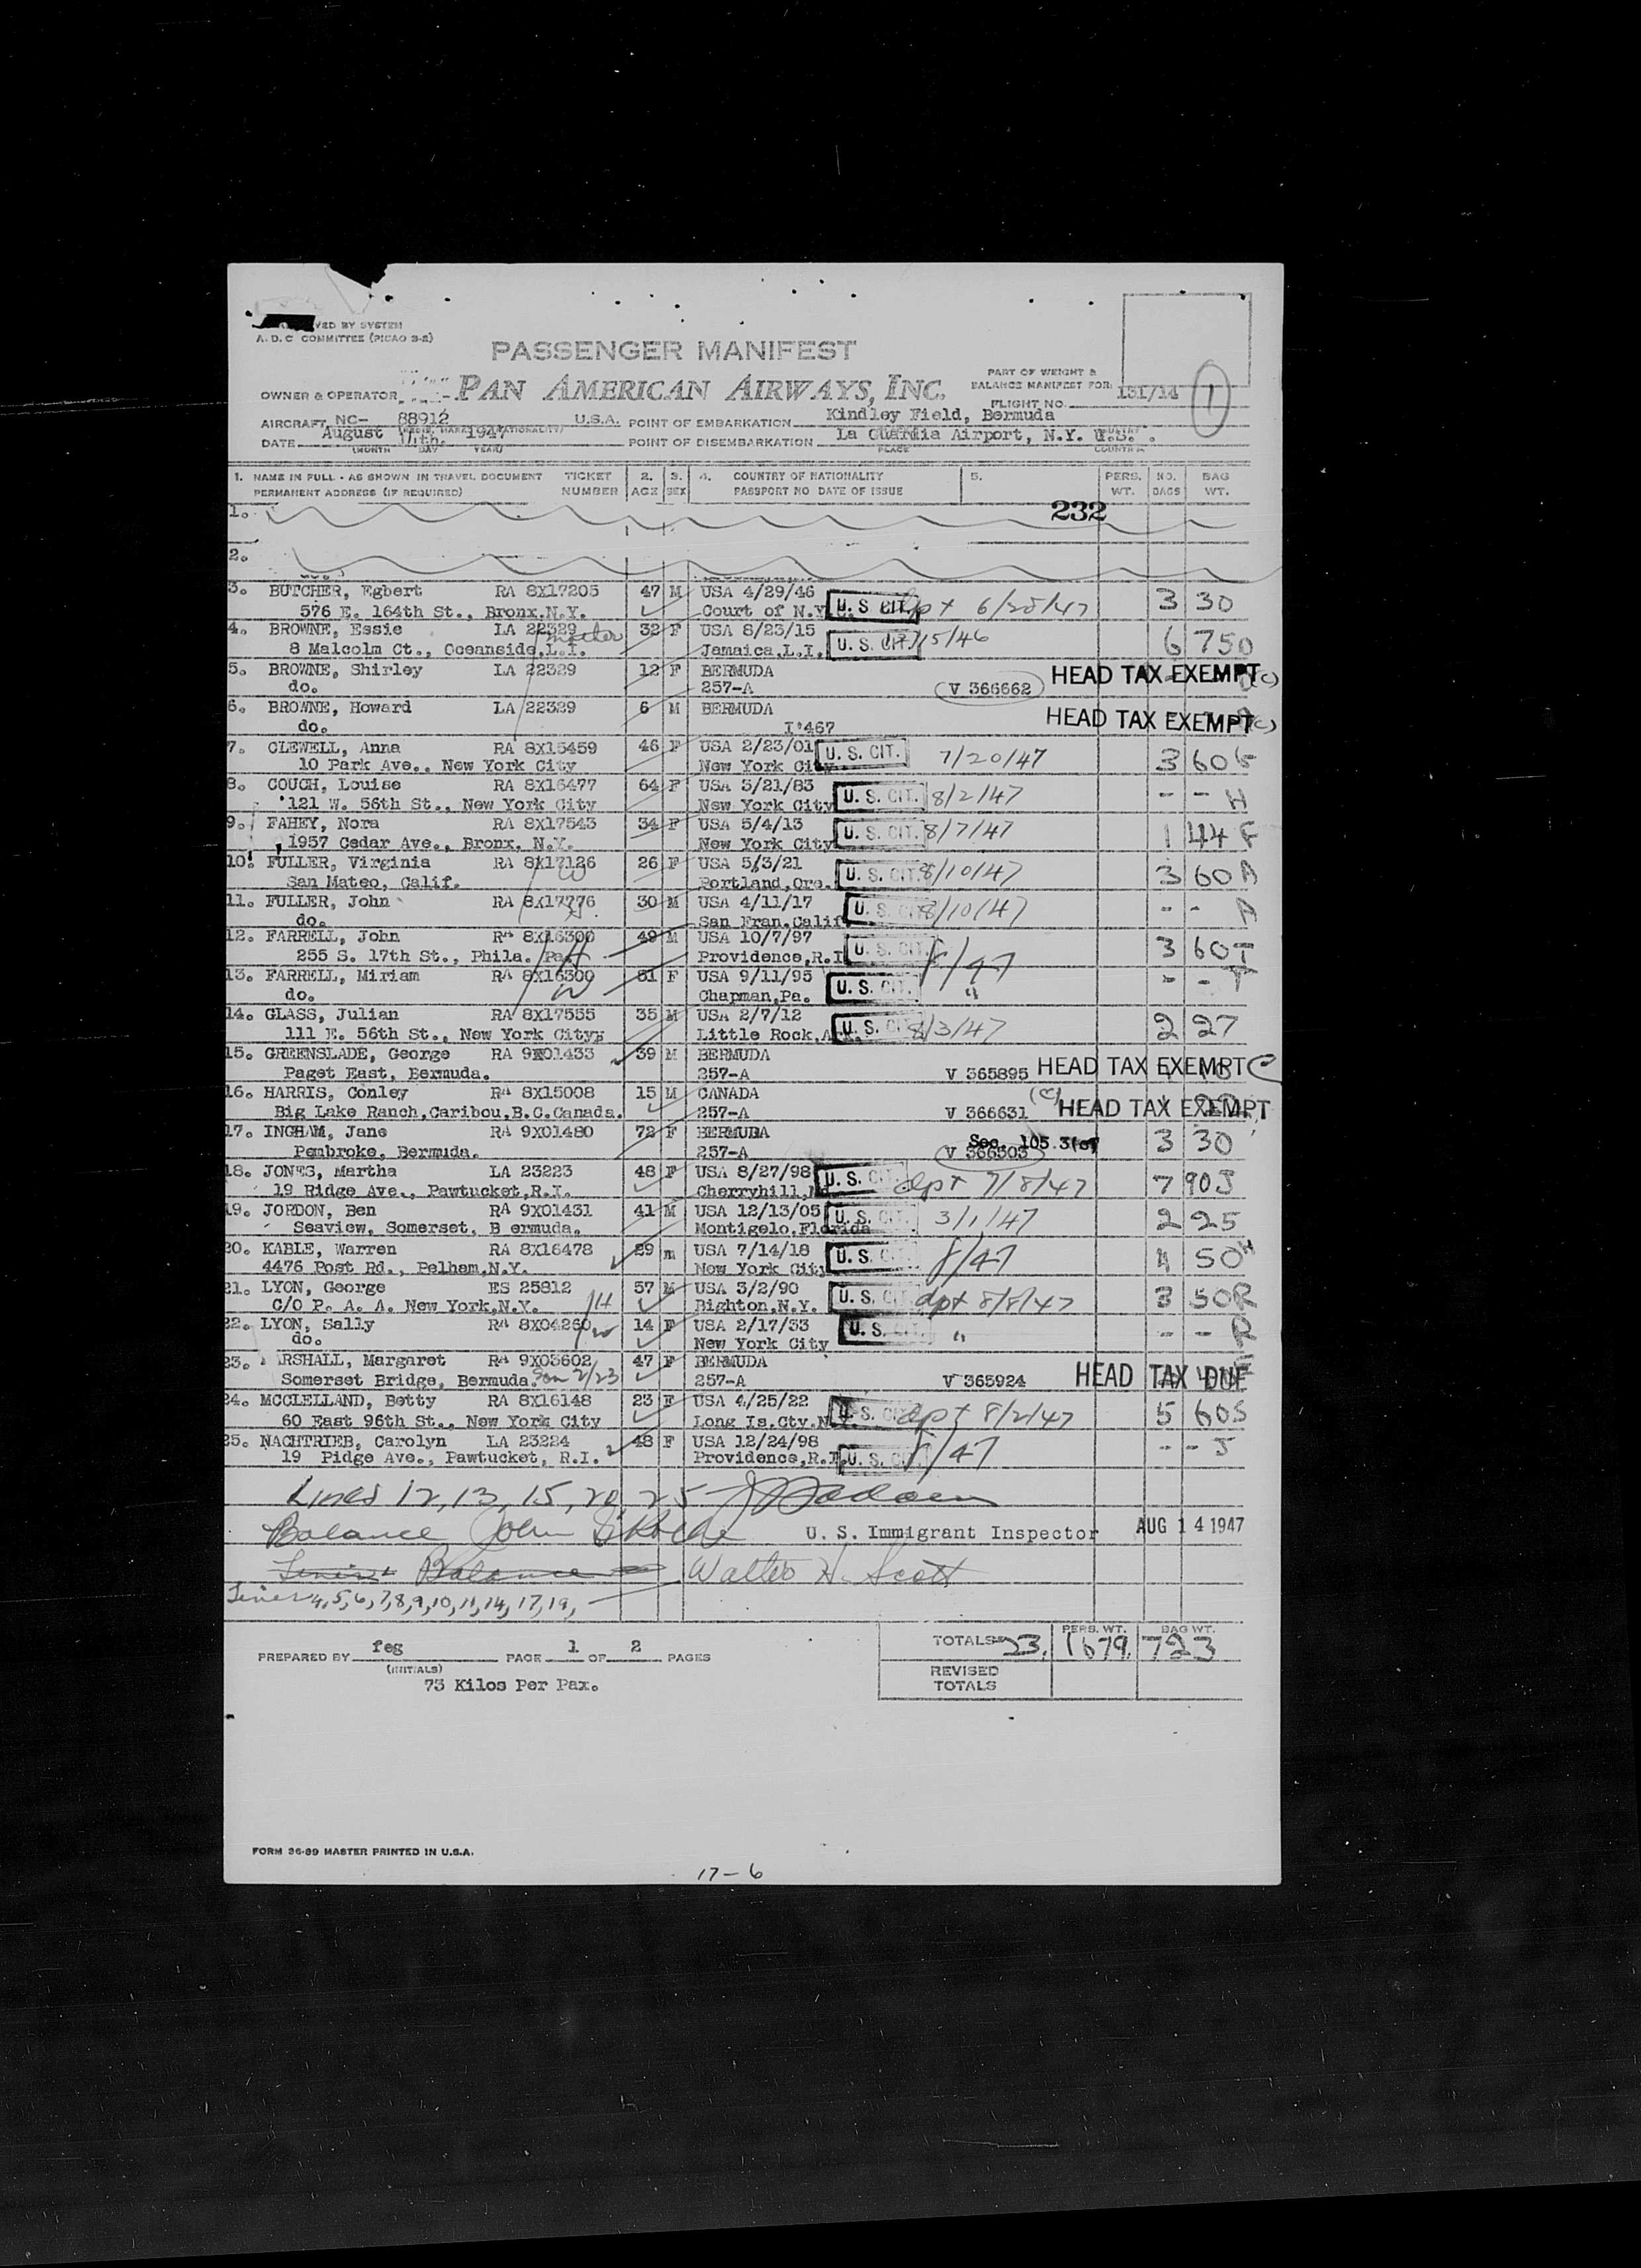 VED BY SYSTEM
A. D. C COMMITTEE (PICAO S-2)
PASSENGER MANIFEST
OWNER & OPERATOR PAN AMERICAN AIRWAYS, INC.
PART OF WEIGHT &
BALANCE MANIFEST FOR:
FLIGHT NO. 131/14 1
AIRCRAFT NC- 88912 U.S.A. POINT OF EMBARKATION Kindley Field, Bermuda
DATE August 14th. 1947 POINT OF DISEMBARKATION La Guardia Airport, N.Y. U.S.
(MONTH DAY YEAR) PLACE COUNTRY
1. NAME IN FULL - AS SHOWN IN TRAVEL DOCUMENT TICKET 2. 3. 4. COUNTRY OF NATIONALITY 5. PERS. NO. BAG
PERMANENT ADDRESS (IF REQUIRED) NUMBER AGE SEX PASSPORT NO DATE OF ISSUE WT. BAGS WT.
1. 232
2.
3. BUTCHER, Egbert RA 8X17205 47 M USA 4/29/46 3 30
576 E. 164th St., Bronx,N.Y. Court of N.Y. U. S. CIT. dpt 6/28/47
4. BROWNE, Essie LA 22329 mother 32 F USA 8/23/15 6 75
8 Malcolm Ct., Oceanside,L.I. Jamaica,L.I. U. S. CIT. 15/46
5. BROWNE, Shirley LA 22329 12 F BERMUDA HEAD TAX EXEMPT (C)
do. 257-A V 366662
6. BROWNE, Howard LA 22329 6 M BERMUDA HEAD TAX EXEMPT (C)
do. I'467
7. CLEWELL, Anna RA 8X15459 46 F USA 2/23/01 U. S. CIT. 7/20/47 3 60
10 Park Ave., New York City New York City
8. COUCH, Louise RA 8X16477 64 F USA 3/21/83 U. S. CIT. 8/2/47 - - H
121 W. 56th St., New York City New York City
9. FAHEY, Nora RA 8X17543 34 F USA 5/4/13 U. S. CIT. 8/7/47 1 44 F
1957 Cedar Ave., Bronx, N.Y. New York City
10. FULLER, Virginia RA 8X17126 26 F USA 5/3/21 U. S. CIT. 8/10/47 3 60 A
San Mateo, Calif. Portland,Ore.
11. FULLER, John RA 8X17776 30 M USA 4/11/17 U. S. CIT. 8/10/47 - - A
do. San Fran,Calif
12. FARRELL, John RA 8X16300 49 M USA 10/7/97 U. S. CIT. 3 60 T
255 S. 17th St., Phila. Pa. Providence,R.I. 8/47
13. FARRELL, Miriam RA 8X16300 51 F USA 9/11/95 - - T
do. Chapman,Pa. U. S. CIT. "
14. GLASS, Julian RA 8X17555 35 M USA 2/7/12 2 27
111 E. 56th St., New York City, Little Rock,Ark. U. S. CIT. 8/3/47
15. GREENSLADE, George RA 9X01433 39 M BERMUDA
Paget East, Bermuda. 257-A V 365895 HEAD TAX EXEMPT C
16. HARRIS, Conley RA 8X15008 15 M CANADA (C)
Big Lake Ranch,Caribou,B.C.Canada. 257-A V 366631 HEAD TAX EXEMPT
17. INGHAM, Jane RA 9X01480 72 F BERMUDA Sec. 105.3(c) 3 30
Pembroke, Bermuda. 257-A V 366503
18. JONES, Martha LA 23223 48 F USA 8/27/98 U. S. CIT. dpt 7/8/47 7 90 J
19 Ridge Ave., Pawtucket,R.I. Cherryhill,Md.
19. JORDON, Ben RA 9X01431 41 M USA 12/13/05 U. S. CIT. 3/1/47 2 25
Seaview, Somerset, B ermuda. Montigelo,Florida
20. KABLE, Warren RA 8X16478 29 m USA 7/14/18 U. S. CIT. 8/47 4 50 H
4476 Post Rd., Pelham,N.Y. New York City
21. LYON, George ES 25812 57 M USA 3/2/90 U. S. CIT. dpt 8/8/47 3 50 R
C/O P. A. A. New York,N.Y. Bighton,N.Y.
22. LYON, Sally RA 8X04260 14 F USA 2/17/33 U. S. CIT. " - - R
do. New York City
23. ARSHALL, Margaret RA 9X03602 47 F BERMUDA
Somerset Bridge, Bermuda. 2/23 257-A V 365924 HEAD TAX DUE
24. MCCLELLAND, Betty RA 8X16148 23 F USA 4/25/22 5 60 S
60 East 96th St., New York City Long Is.Cty.N.Y. U. S. CIT. dpt 8/2/47
25. NACHTRIEB, Carolyn LA 23224 48 F USA 12/24/98 - - J
19 Pidge Ave., Pawtucket, R.I. Providence,R.I. U. S. CIT. 8/47
Lines 12, 13, 15, 20, 25
Balance John U. S. Immigrant Inspector AUG 14 1947
Balance Walter H. Scott
Lines 4,5,6,7,8,9,10,11,14,17,19,
TOTALS 23. PERS. WT. 1679. BAG WT. 723
PREPARED BY feg PAGE 1 OF 2 PAGES
(INITIALS) REVISED
TOTALS
73 Kilos Per Pax.
FORM 36-89 MASTER PRINTED IN U.S.A.
17-6